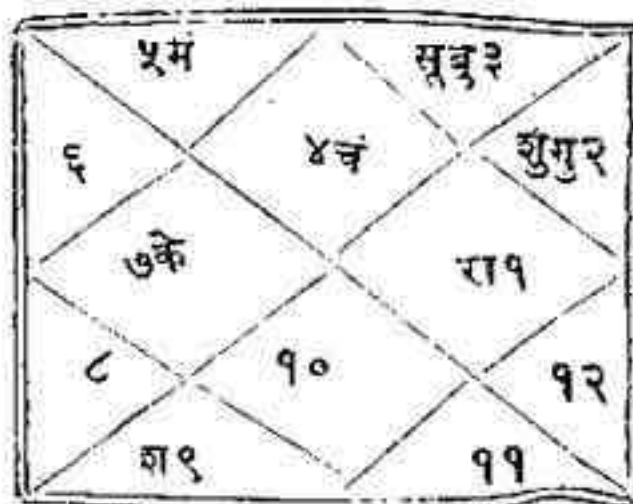 ५मं
सूबु३
६
४चं
शुगु२
७के
रा१
८
१०
१२
श९
११